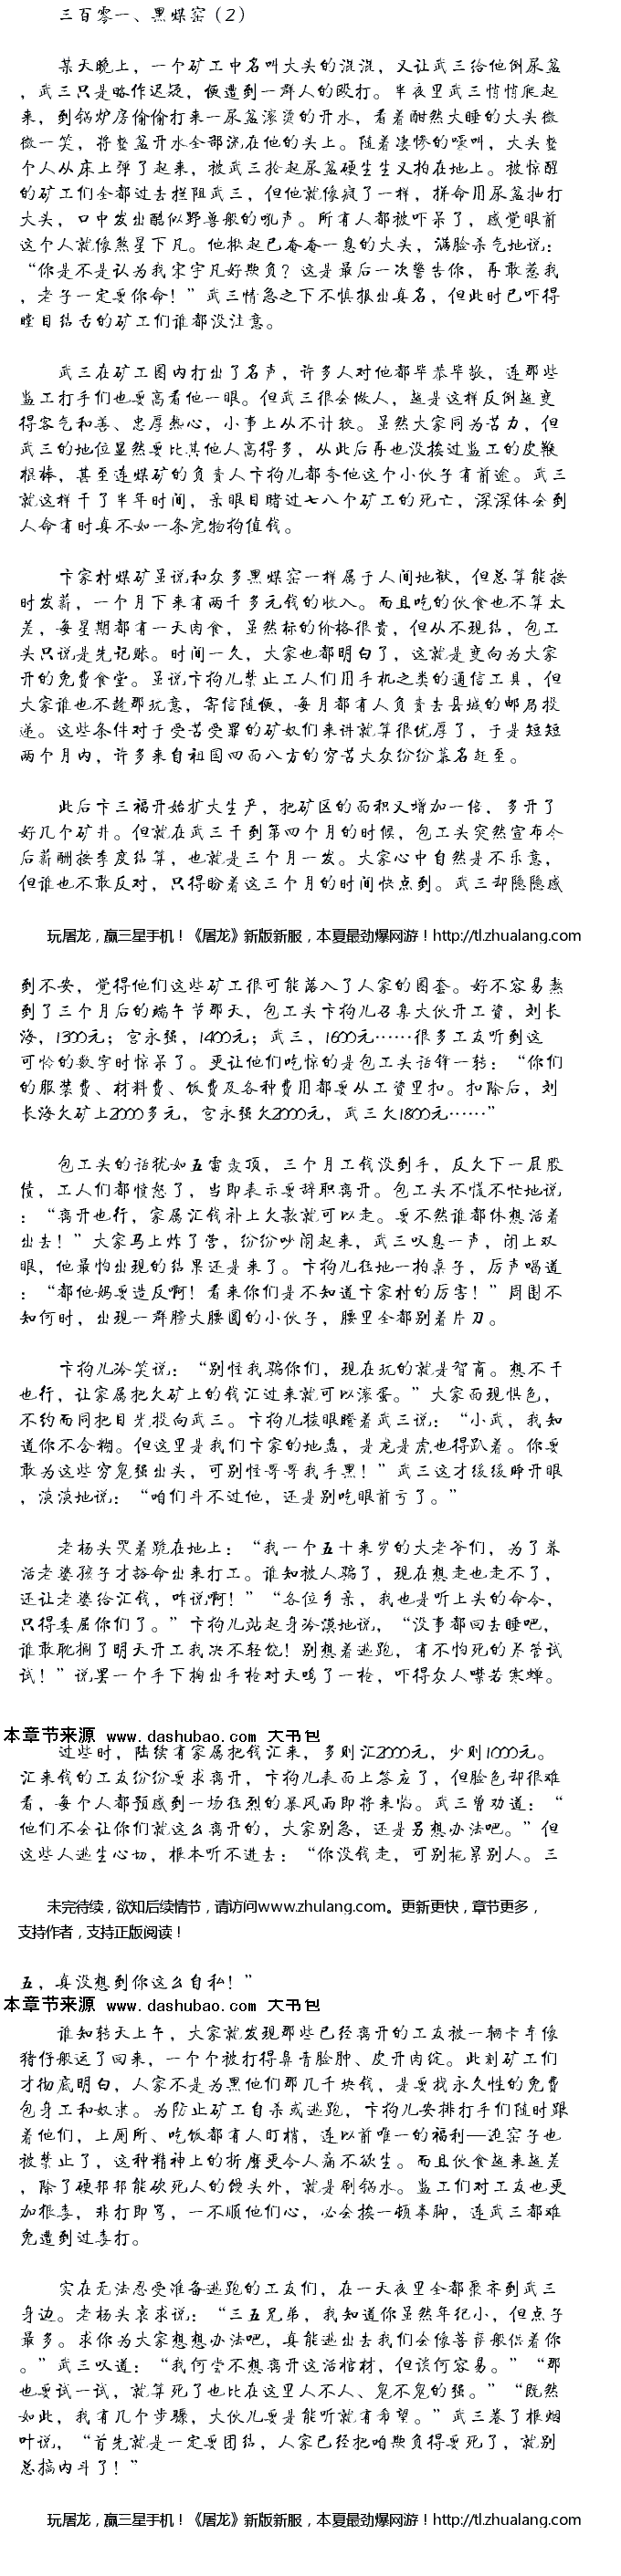 三百零一、黑煤窑（2）
某天晚上，一个矿工中名叫大头的混混，又让武三给他倒尿盆
，武三只是略作迟疑，便遭到一群人的殴打。半夜里武三悄悄爬起
来，到锅炉房偷偷打来一尿盆滚烫的开水，看着酣然大睡的大头微
微一笑，将整盆开水全部浇在他的头上。随着凄惨的嚎叫，大头整
个人从床上弹了起来，被武三抡起尿盆硬生生又拍在地上。被惊醒
的矿工们全都过去拦阻武三，但他就像疯了一样，拼命用尿盆抽打
大头，口中发出酷似野兽般的吼声。所有人都被吓呆了，感觉眼前
这个人就像煞星下凡。他揪起已奄奄一息的大头，满脸杀气地说：
“你是不是认为我宋宇凡好欺负？这是最后一次警告你，再敢惹我
，老子一定要你命！”武三情急之下不慎报出真名，但此时已吓得
瞠目结舌的矿工们谁都没注意。
武三在矿工圈内打出了名声，许多人对他都毕恭毕敬，连那些
监工打手们也要高看他一眼。但武三很会做人，越是这样反倒越变
得客气和善、忠厚热心，小事上从不计较。虽然大家同为苦力，但
武三的地位显然要比其他人高得多，从此后再也没挨过监工的皮鞭
棍棒，甚至连煤矿的负责人卞狗儿都夸他这个小伙子有前途。武三
就这样干了半年时间，亲眼目睹过七八个矿工的死亡，深深体会到
人命有时真不如一条宠物狗值钱。
卞家村煤矿虽说和众多黑煤窑一样属于人间地狱，但总算能按
时发薪，一个月下来有两千多元钱的收入。而且吃的伙食也不算太
差，每星期都有一天肉食，虽然标的价格很贵，但从不现结，包工
头只说是先记账。时间一久，大家也都明白了，这就是变向为大家
开的免费食堂。虽说卞狗儿禁止工人们用手机之类的通信工具，但
大家谁也不趁那玩意，寄信随便，每月都有人负责去县城的邮局投
递。这些条件对于受苦受罪的矿奴们来讲就算很优厚了，于是短短
两个月内，许多来自祖国四面八方的穷苦大众纷纷慕名赶至。
此后卞三福开始扩大生产，把矿区的面积又增加一倍，多开了
好几个矿井。但就在武三干到第四个月的时候，包工头突然宣布今
后薪酬按季度结算，也就是三个月一发。大家心中自然是不乐意，
但谁也不敢反对，只得盼着这三个月的时间快点到。武三却隐隐感
玩屠龙，赢三星手机！《屠龙》新版新服，本夏最劲爆网游！http://tl.zhualang.com
到不安，觉得他们这些矿工很可能落入了人家的圈套。好不容易熬
到了三个月后的端午节那天，包工头卞狗儿召集大伙开工资，刘长
海，1300元；宫永强，1400元；武三，1600元……很多工友听到这
可怜的数字时惊呆了。更让他们吃惊的是包工头话锋一转：“你们
的服装费、材料费、饭费及各种费用都要从工资里扣。扣除后，刘
长海欠矿上2000多元，宫永强欠2000元，武三欠1800元……”
包工头的话犹如五雷轰顶，三个月工钱没到手，反欠下一屁股
债，工人们都愤怒了，当即表示要辞职离开。包工头不慌不忙地说
：“离开也行，家属汇钱补上欠款就可以走。要不然谁都休想活着
出去！”大家马上炸了营，纷纷吵闹起来，武三叹息一声，闭上双
眼，他最怕出现的结果还是来了。卞狗儿猛地一拍桌子，厉声喝道
：“都他妈要造反啊！看来你们是不知道卞家村的厉害！”周围不
知何时，出现一群膀大腰圆的小伙子，腰里全都别着片刀。
卞狗儿冷笑说：“别怪我骗你们，现在玩的就是智商。想不干
也行，让家属把欠矿上的钱汇过来就可以滚蛋。”大家面现惧色，
不约而同把目光投向武三。卞狗儿横眼瞪着武三说：“小武，我知
道你不含糊。但这里是我们卞家的地盘，是龙是虎也得趴着。你要
敢为这些穷鬼强出头，可别怪哥哥我手黑！”武三这才缓缓睁开眼
，淡淡地说：“咱们斗不过他，还是别吃眼前亏了。”
老杨头哭着跪在地上：“我一个五十来岁的大老爷们，为了养
活老婆孩子才豁命出来打工。谁知被人骗了，现在想走也走不了，
还让老婆给汇钱，咋说啊！”“各位乡亲，我也是听上头的命令，
只得委屈你们了。”卞狗儿站起身冷漠地说，“没事都回去睡吧，
谁敢耽搁了明天开工我决不轻饶！别想着逃跑，有不怕死的尽管试
试！”说罢一个手下掏出手枪对天鸣了一枪，吓得众人噤若寒蝉。
本章节来源 www.dashubao.com 大书包
过些时，陆续有家属把钱汇来，多则汇2000元，少则1000元。
汇来钱的工友纷纷要求离开，卞狗儿表面上答应了，但脸色却很难
看，每个人都预感到一场猛烈的暴风雨即将来临。武三曾劝道：“
他们不会让你们就这么离开的，大家别急，还是另想办法吧。”但
这些人逃生心切，根本听不进去：“你没钱走，可别拖累别人。三
未完待续，欲知后续情节，请访问www.zhulang.com。更新更快，章节更多，
支持作者，支持正版阅读！
五，真没想到你这么自私！”
本章节来源 www.dashubao.com 大书包
谁知转天上午，大家就发现那些已经离开的工友被一辆卡车像
猪仔般运了回来，一个个被打得鼻青脸肿、皮开肉绽。此刻矿工们
才彻底明白，人家不是为黑他们那几千块钱，是要找永久性的免费
包身工和奴隶。为防止矿工自杀或逃跑，卞狗儿安排打手们随时跟
着他们，上厕所、吃饭都有人盯梢，连以前唯一的福利—逛窑子也
被禁止了，这种精神上的折磨更令人痛不欲生。而且伙食越来越差
，除了硬邦邦能砍死人的馒头外，就是刷锅水。监工们对工友也更
加狠毒，非打即骂，一不顺他们心，必会挨一顿拳脚，连武三都难
免遭到过毒打。
实在无法忍受准备逃跑的工友们，在一天夜里全都聚齐到武三
身边。老杨头哀求说：“三五兄弟，我知道你虽然年纪小，但点子
最多。求你为大家想想办法吧，真能逃出去我们会像菩萨般供着你
。”武三叹道：“我何尝不想离开这活棺材，但谈何容易。”“那
也要试一试，就算死了也比在这里人不人、鬼不鬼的强。”“既然
如此，我有几个步骤，大伙儿要是能听就有希望。”武三卷了根烟
叶说，“首先就是一定要团结，人家已经把咱欺负得要死了，就别
总搞内斗了！”
玩屠龙，赢三星手机！《屠龙》新版新服，本夏最劲爆网游！http://tl.zhualang.com